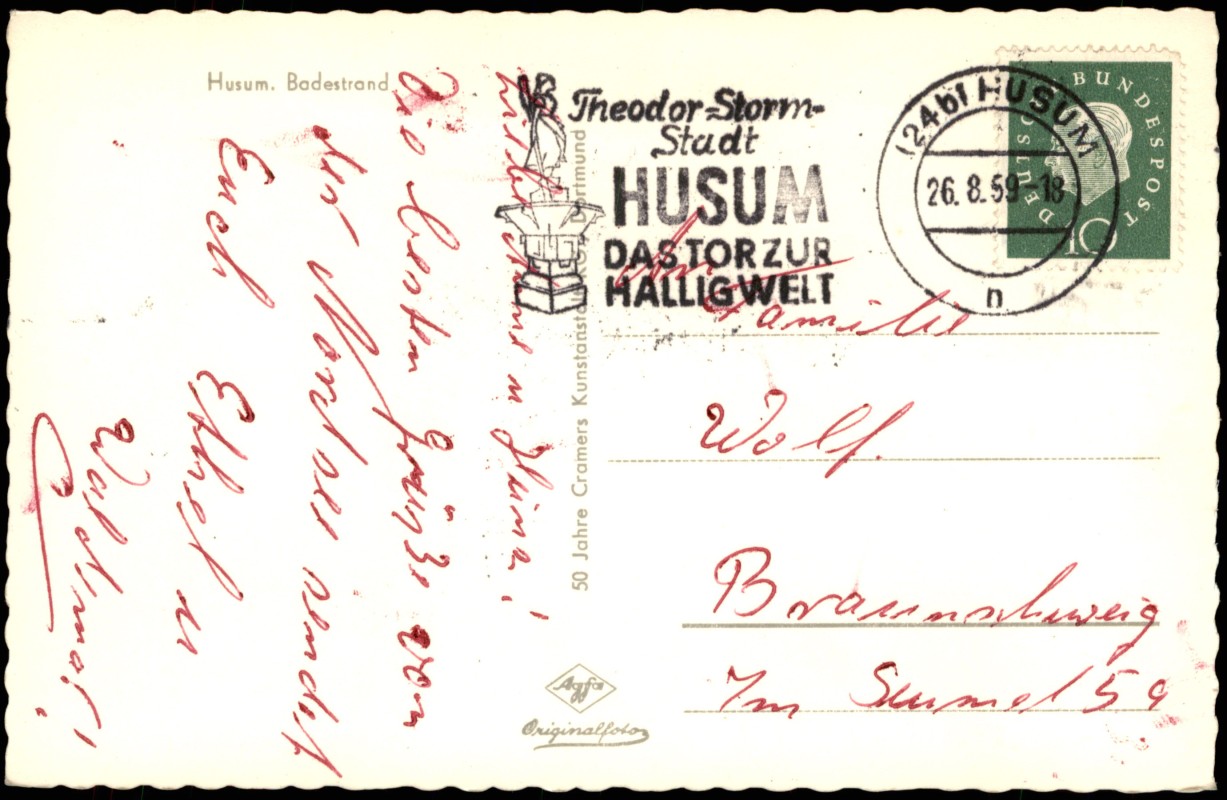 Husum. Badestrand
Die besten Grüße von
der Nordsee sendet
Euch
Ethel u
Waldmar!
50 Jahre Cramers Kunstanstalt Dortmund
Agfa
Originalfoto
Theodor-Storm-
Stadt
HUSUM
DAS TOR ZUR
HALLIGWELT
(24b) HUSUM
26.8.59-18
n
DEUTSCHE BUNDESPOST
10
An
Familie
Wolf.
Braunschweig
Im